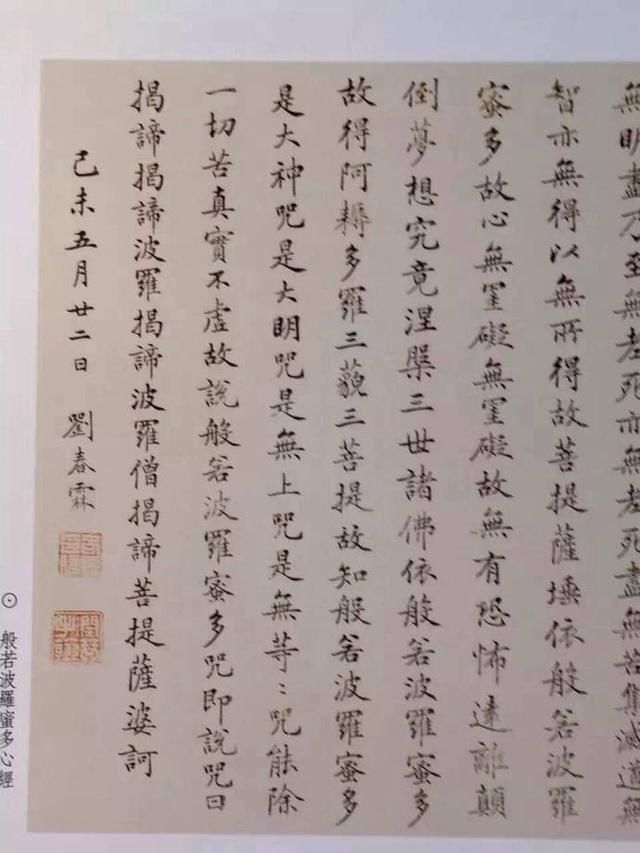 無明盡乃至無老死亦無老死盡無苦集滅道無
智亦無得以無所得故菩提薩埵依般若波羅
蜜多故心無罣礙無罣礙故無有恐怖遠離顛
倒夢想究竟涅槃三世諸佛依般若波羅蜜多
故得阿耨多羅三藐三菩提故知般若波羅蜜多
是大神咒是大明咒是無上咒是無等〻咒能除
一切苦真實不虛故說般若波羅蜜多咒即說咒曰
揭諦揭諦波羅揭諦波羅僧揭諦菩提薩婆訶
己未五月廿二日 劉春霖
⊙ 般若波羅蜜多心經